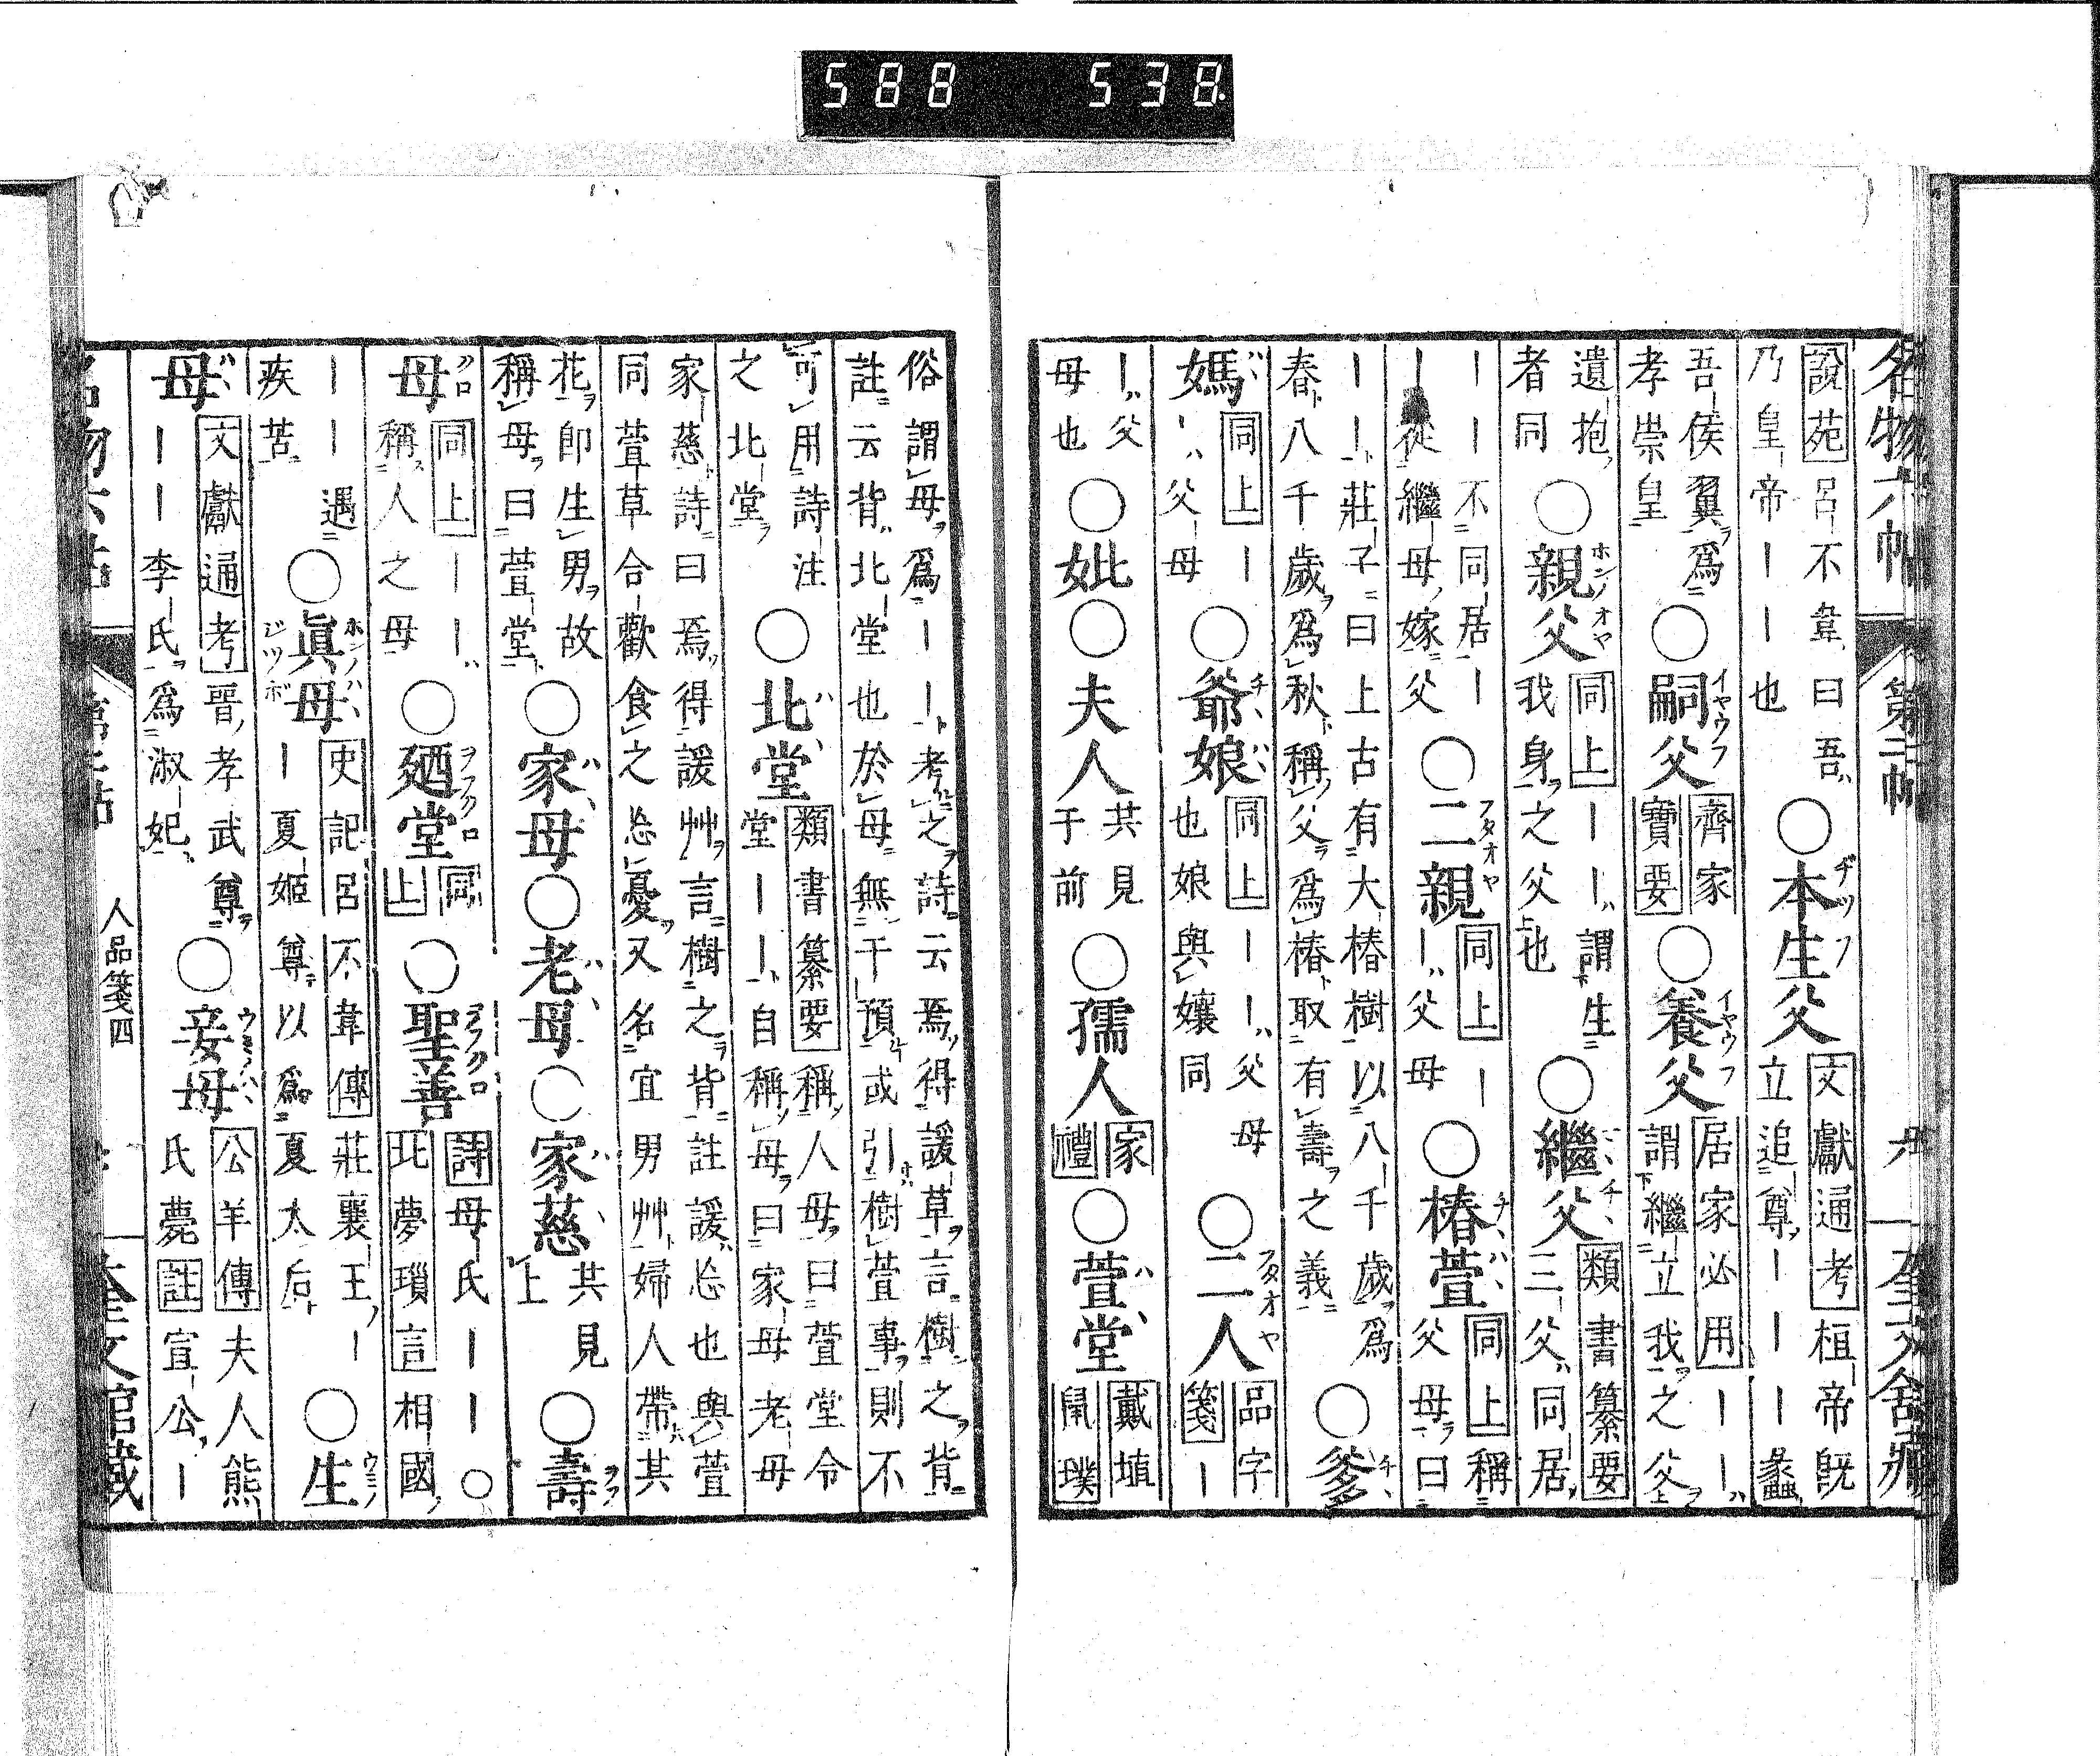 588 538
名物六帖 第二帖 六 奎文舘藏
說苑呂不韋曰吾乃皇帝｜｜也○本生父文獻通考桓帝旣立追尊｜｜｜蠡
吾侯翼爲孝崇皇○嗣父齊家寶要○養父居家必用｜｜謂繼立我之父
遺抱者同○親父同上｜｜謂生我身之父也○繼父類書纂要三父同居
｜｜不同居｜｜從繼母嫁父○二親同上｜｜父母○椿萱同上稱父母曰
｜｜莊子曰上古有大椿樹以八千歲爲春八千歲爲秋稱父爲椿取有壽之義○爹
媽同上｜｜父母○爺娘同上｜｜父母也娘與孃同○二人品字箋｜
｜父母也○妣○夫人共見于前○孺人家禮○萱堂戴埴鼠璞
俗謂母爲｜｜考之詩云焉得諼草言樹之背註云背北堂也於母無干預或引樹萱事則不
可用詩注之北堂○北堂類書纂要稱人母曰萱堂令堂｜｜自稱母曰家母老母
家慈詩曰焉得諼艸言樹之背註諼忘也與萱同萱草合歡食之忘憂又名宜男艸婦人帶其
花卽生男故稱母曰萱堂○家母○老母○家慈共見上○壽
母同上｜｜稱人之母○廼堂同上○聖善詩母氏｜｜○北夢瑣言相國
｜｜遇疾苦○眞母史記呂不韋傳莊襄王｜｜夏姬尊以爲夏太后○生
母文獻通考晉孝武尊｜｜李氏爲淑妃○妾母公羊傳夫人熊氏薨註宣公｜
名物六帖 第二帖 人品箋四 奎文舘藏